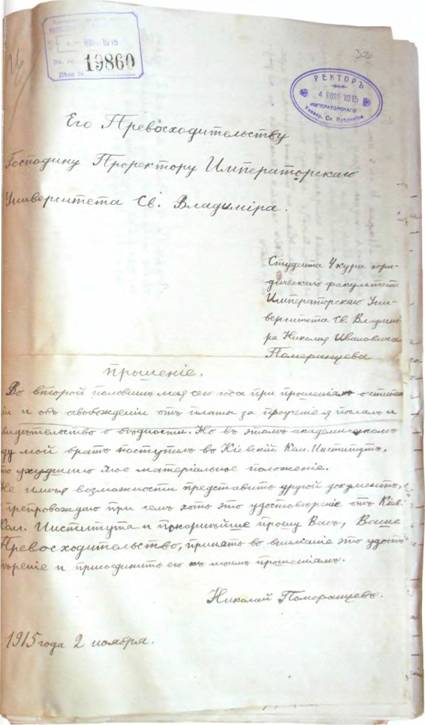 19860
РЕКТОРЪ
4 НОЯ 1915
ИМПЕРАТОРСКАГО
Универ. Св. Владиміра
Его Превосходительству
Господину Проректору Императорскаго
Университета Св. Владиміра.
Студента 4 курса юри-
дическаго факультета
Императорскаго Уни-
верситета Св. Владимі-
ра Николая Ивановича
Померанцева
Прошеніе.
Во второй половинѣ мая сего года при прошеніях о
и и объ освобожденіи отъ платы за я подалъ
видетельство о бѣдности. Но въ этомъ академическомъ
ду мой братъ поступилъ въ Кіевскій Ком. Институтъ,
то ухудшило мое матеріальное положеніе.
Не имѣя возможности представить другой документъ,
препровождаю при чемъ хоть это удостовереніе отъ Кіев.
Ком. Института и покорнѣйше прошу Васъ, Ваше
Превосходительство, принять во вниманіе это удосто
вѣреніе и присоединить его къ моимъ прошеніямъ.
Николай Померанцевъ.
1915 года 2 ноября.